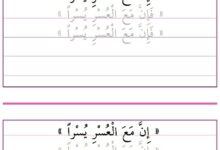 « فَإِنَّ مَعَ الْعُسْرِ يُسْراً »
« فَإِنَّ مَعَ الْعُسْرِ يُسْراً »
« إِنَّ مَعَ الْعُسْرِ يُسْراً »
« إِنَّ مَعَ الْعُسْرِ يُسْراً »